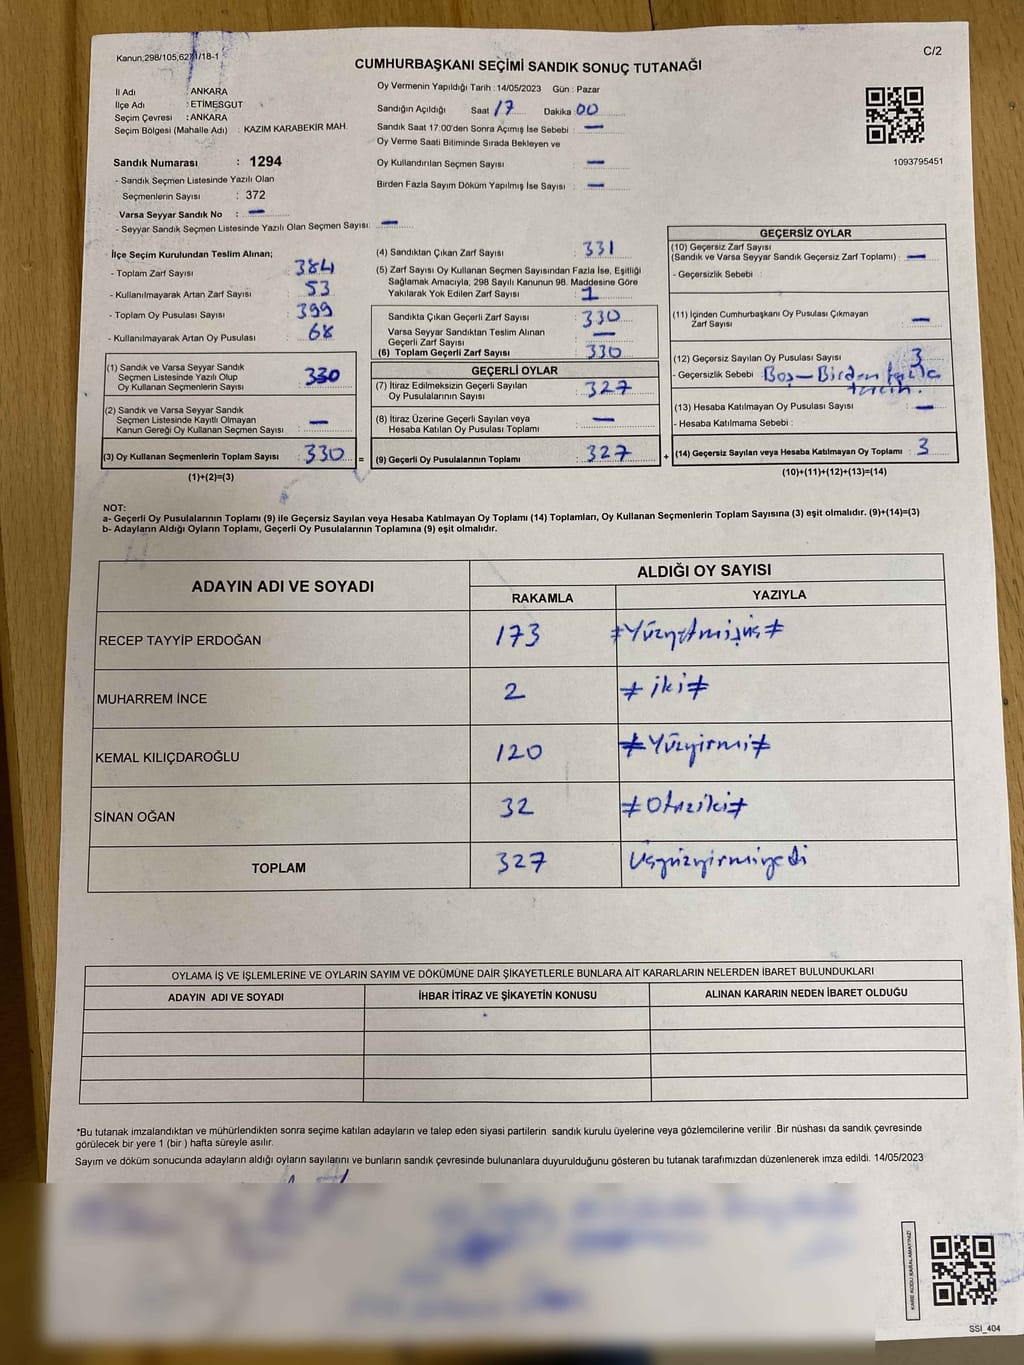 Kanun;298/105,62/1/18-1
C/2
CUMHURBAŞKANI SEÇİMİ SANDIK SONUÇ TUTANAĞI
İl Adı : ANKARA
İlçe Adı : ETİMESGUT
Seçim Çevresi : ANKARA
Seçim Bölgesi (Mahalle Adı) : KAZIM KARABEKİR MAH.
Sandık Numarası : 1294
- Sandık Seçmen Listesinde Yazılı Olan
Seçmenlerin Sayısı : 372
Varsa Seyyar Sandık No : —
- Seyyar Sandık Seçmen Listesinde Yazılı Olan Seçmen Sayısı: —
Oy Vermenin Yapıldığı Tarih : 14/05/2023 Gün : Pazar
Sandığın Açıldığı Saat 17 Dakika 00
Sandık Saat 17:00'den Sonra Açımış İse Sebebi : —
Oy Verme Saati Bitiminde Sırada Bekleyen ve
Oy Kullandırılan Seçmen Sayısı : —
Birden Fazla Sayım Döküm Yapılmış İse Sayısı : —
1093795451
İlçe Seçim Kurulundan Teslim Alınan;
- Toplam Zarf Sayısı : 384
- Kullanılmayarak Artan Zarf Sayısı : 53
- Toplam Oy Pusulası Sayısı : 399
- Kullanılmayarak Artan Oy Pusulası : 68
(1) Sandık ve Varsa Seyyar Sandık
Seçmen Listesinde Yazılı Olup
Oy Kullanan Seçmenlerin Sayısı : 330
(2) Sandık ve Varsa Seyyar Sandık
Seçmen Listesinde Kayıtlı Olmayan
Kanun Gereği Oy Kullanan Seçmen Sayısı : —
(3) Oy Kullanan Seçmenlerin Toplam Sayısı : 330 =
(1)+(2)=(3)
(4) Sandıktan Çıkan Zarf Sayısı : 331
(5) Zarf Sayısı Oy Kullanan Seçmen Sayısından Fazla İse, Eşitliği
Sağlamak Amacıyla, 298 Sayılı Kanunun 98. Maddesine Göre
Yakılarak Yok Edilen Zarf Sayısı : 1
Sandıkta Çıkan Geçerli Zarf Sayısı : 330
Varsa Seyyar Sandıktan Teslim Alınan
Geçerli Zarf Sayısı : —
(6) Toplam Geçerli Zarf Sayısı : 330
GEÇERLİ OYLAR
(7) İtiraz Edilmeksizin Geçerli Sayılan
Oy Pusulalarının Sayısı : 327
(8) İtiraz Üzerine Geçerli Sayılan veya
Hesaba Katılan Oy Pusulası Toplamı : —
(9) Geçerli Oy Pusulalarının Toplamı : 327 +
GEÇERSİZ OYLAR
(10) Geçersiz Zarf Sayısı
(Sandık ve Varsa Seyyar Sandık Geçersiz Zarf Toplamı) : —
- Geçersizlik Sebebi :
(11) İçinden Cumhurbaşkanı Oy Pusulası Çıkmayan
Zarf Sayısı : —
(12) Geçersiz Sayılan Oy Pusulası Sayısı : 3
- Geçersizlik Sebebi : Boş — Birden fazla
tercih.
(13) Hesaba Katılmayan Oy Pusulası Sayısı : —
- Hesaba Katılmama Sebebi :
(14) Geçersiz Sayılan veya Hesaba Katılmayan Oy Toplamı : 3
(10)+(11)+(12)+(13)=(14)
NOT:
a- Geçerli Oy Pusulalarının Toplamı (9) ile Geçersiz Sayılan veya Hesaba Katılmayan Oy Toplamı (14) Toplamları, Oy Kullanan Seçmenlerin Toplam Sayısına (3) eşit olmalıdır. (9)+(14)=(3)
b- Adayların Aldığı Oyların Toplamı, Geçerli Oy Pusulalarının Toplamına (9) eşit olmalıdır.
ADAYIN ADI VE SOYADI ALDIĞI OY SAYISI
RAKAMLA YAZIYLA
RECEP TAYYİP ERDOĞAN 173 ≠Yüzyetmişüç≠
MUHARREM İNCE 2 ≠iki≠
KEMAL KILIÇDAROĞLU 120 ≠Yüzyirmi≠
SİNAN OĞAN 32 ≠Otuziki≠
TOPLAM 327 Üçyüzyirmiyedi
OYLAMA İŞ VE İŞLEMLERİNE VE OYLARIN SAYIM VE DÖKÜMÜNE DAİR ŞİKAYETLERLE BUNLARA AİT KARARLARIN NELERDEN İBARET BULUNDUKLARI
ADAYIN ADI VE SOYADI İHBAR İTİRAZ VE ŞİKAYETİN KONUSU ALINAN KARARIN NEDEN İBARET OLDUĞU
*Bu tutanak imzalandıktan ve mühürlendikten sonra seçime katılan adayların ve talep eden siyasi partilerin sandık kurulu üyelerine veya gözlemcilerine verilir .Bir nüshası da sandık çevresinde
görülecek bir yere 1 (bir ) hafta süreyle asılır.
Sayım ve döküm sonucunda adayların aldığı oyların sayılarını ve bunların sandık çevresinde bulunanlara duyurulduğunu gösteren bu tutanak tarafımızdan düzenlenerek imza edildi. 14/05/2023
KARE KODU KARALAMAYINIZ!
SSI_404